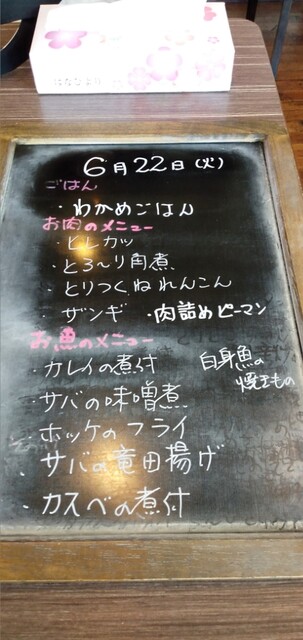 はなびより
6月22日(火)
ごはん
・わかめごはん
お肉のメニュー
・ヒレカツ
・とろ〜り角煮
・とりつくねれんこん
・ザンギ ・肉詰めピーマン
お魚のメニュー
・カレイの煮付
白身魚の
焼きもの
・サバの味噌煮
・ホッケのフライ
・サバの竜田揚げ
・カスベの煮付